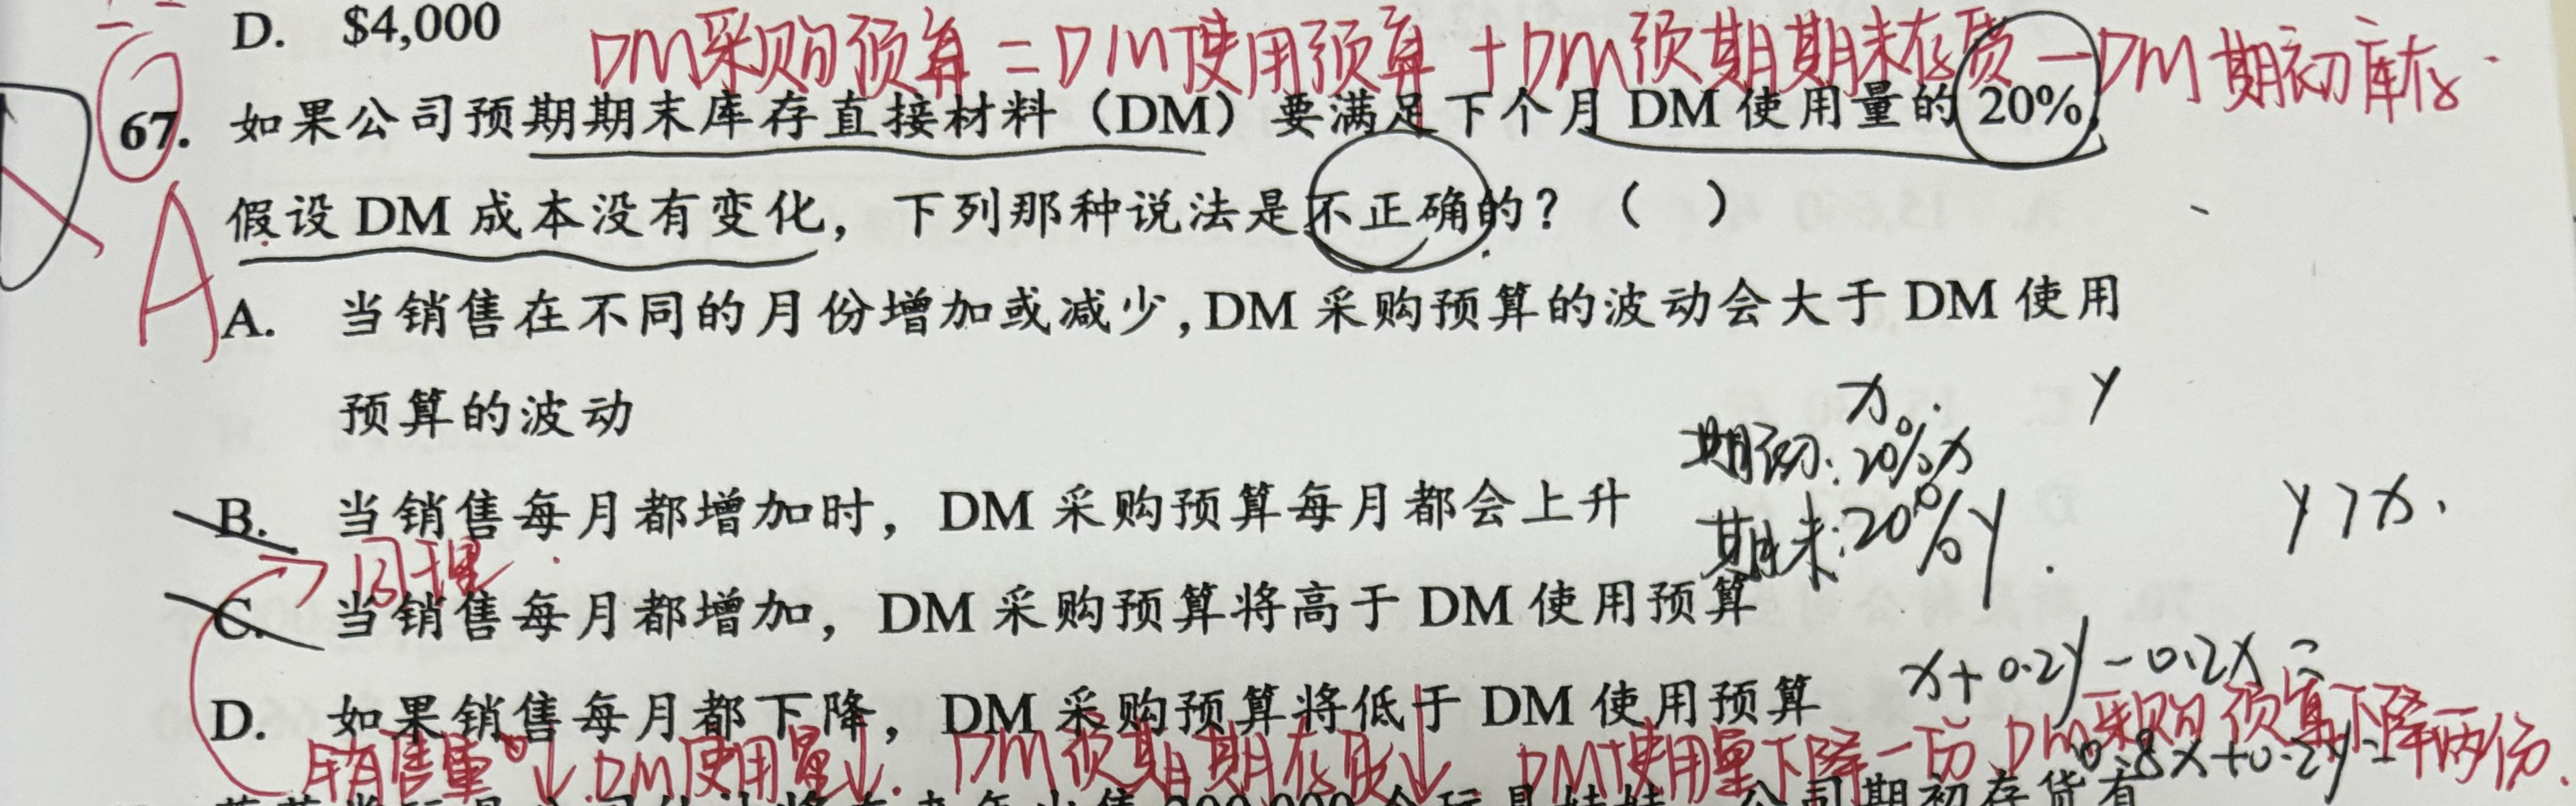 D. $4,000
DM采购预算=DM使用预算+DM预期期末存货-DM期初库存.
67. 如果公司预期期末库存直接材料（DM）要满足下个月 DM 使用量的 20%,
假设 DM 成本没有变化，下列那种说法是不正确的？（ ）
A
A. 当销售在不同的月份增加或减少,DM 采购预算的波动会大于 DM 使用
预算的波动
x. y
期初:20%x
B. 当销售每月都增加时，DM 采购预算每月都会上升
期末:20%y.
y>x.
同理.
C. 当销售每月都增加，DM 采购预算将高于 DM 使用预算
x+0.2y-0.2x=
D. 如果销售每月都下降，DM 采购预算将低于 DM 使用预算
0.8x+0.2y=
销售量↓.DM使用量↓. DM预期期存取↓ DM使用量下降一份,DM采购预算下降两份.